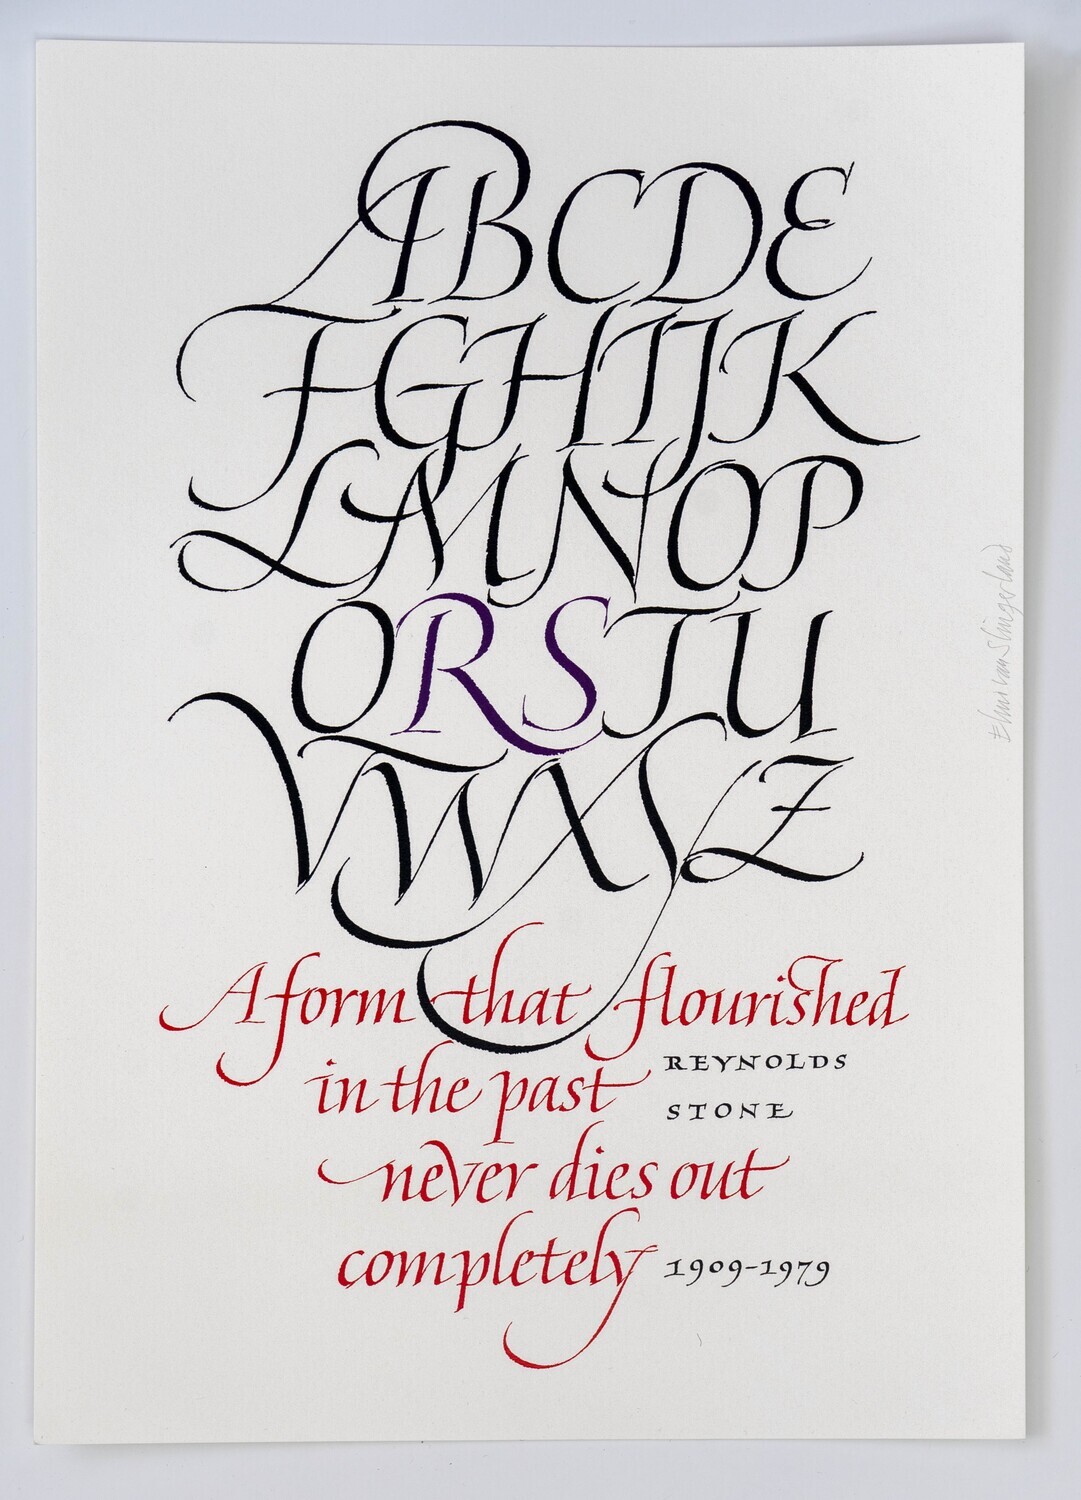 ABCDE
FGHIJK
LMNOP
QRSTU
VWXYZ
A form that flourished
in the past
REYNOLDS
STONE
never dies out
completely
1909-1979
Elmo van Slingerland